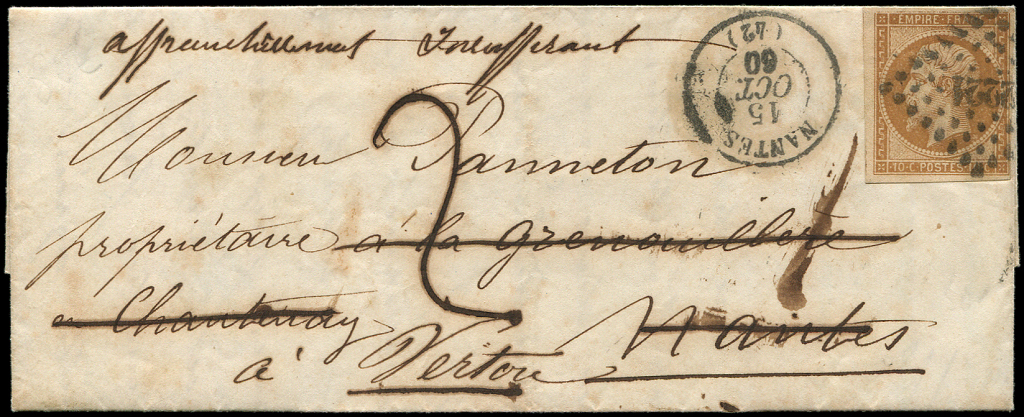 affranchissement Insuffisant
EMPIRE FRANC
10 C POSTES
NANTES
15
OCT.
60
(42)
2
Monsieur Panneton
propriétaire à la Grenouillère
en Chantenay
Nantes
à Vertou